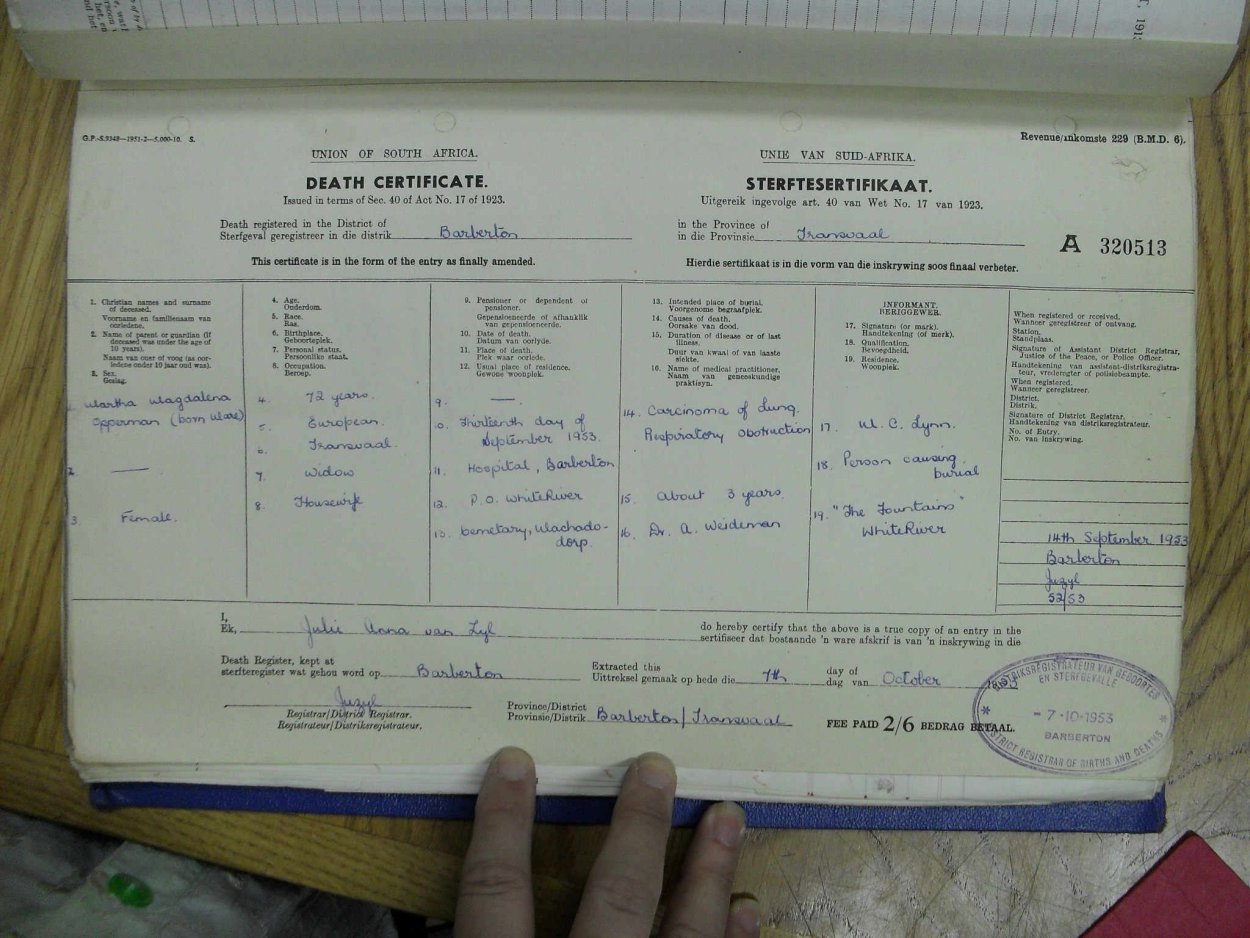 G.P.-S.9348—1951-2—5,000-10. S.
Revenue/Inkomste 229 (B.M.D. 6).
UNION OF SOUTH AFRICA.
DEATH CERTIFICATE.
Issued in terms of Sec. 40 of Act No. 17 of 1923.
Death registered in the District of
Sterfgeval geregistreer in die distrik Barberton
This certificate is in the form of the entry as finally amended.
UNIE VAN SUID-AFRIKA.
STERFTESERTIFIKAAT.
Uitgereik ingevolge art. 40 van Wet No. 17 van 1923.
in the Province of
in die Provinsie Transvaal
A 320513
Hierdie sertifikaat is in die vorm van die inskrywing soos finaal verbeter.
1. Christian names and surname
of deceased.
Voorname en familienaam van
oorledene.
2. Name of parent or guardian (if
deceased was under the age of
10 years).
Naam van ouer of voog (as oor-
ledene onder 10 jaar oud was).
3. Sex.
Geslag.
Martha Magdalena
Opperman (born Maré)
2. —
3. Female.
4. Age.
Ouderdom.
5. Race.
Ras.
6. Birthplace.
Geboorteplek.
7. Personal status.
Persoonlike staat.
8. Occupation.
Beroep.
4. 72 years.
5. European.
6. Transvaal.
7. Widow
8. Housewife
9. Pensioner or dependent of
pensioner.
Gepensioeneerde of afhanklik
van gepensioeneerde.
10. Date of death.
Datum van oorlyde.
11. Place of death.
Plek waar oorlede.
12. Usual place of residence.
Gewone woonplek.
9. —
10. Thirteenth day of
September 1953.
11. Hospital, Barberton
12. P.O. WhiteRiver
13. Cemetary, Machado-
dorp.
13. Intended place of burial.
Voorgenome begraafplek.
14. Causes of death.
Oorsake van dood.
15. Duration of disease or of last
illness.
Duur van kwaal of van laaste
siekte.
16. Name of medical practitioner.
Naam van geneeskundige
praktisyn.
14. Carcinoma of Lung.
Respiratory Obstruction
15. About 3 years.
16. Dr. A. Weideman
INFORMANT.
BERIGGEWER.
17. Signature (or mark).
Handtekening (of merk).
18. Qualification.
Bevoegdheid.
19. Residence.
Woonplek.
17. M. C. Lynn.
18. Person causing
burial
19. "The Fountains"
WhiteRiver
When registered or received.
Wanneer geregistreer of ontvang.
Station.
Standplaas.
Signature of Assistant District Registrar,
Justice of the Peace, or Police Officer.
Handtekening van assistent-distriksregistra-
teur, vrederegter of polisiebeampte.
When registered.
Wanneer geregistreer.
District.
Distrik.
Signature of District Registrar.
Handtekening van distriksregistrateur.
No. of Entry.
No. van inskrywing.
14th September 1953
Barberton
Juzyl
52/53
I,
Ek, Julie Anna van Zyl
do hereby certify that the above is a true copy of an entry in the
sertifiseer dat bostaande 'n ware afskrif is van 'n inskrywing in die
Death Register, kept at
sterfteregister wat gehou word op Barberton
Extracted this
Uittreksel gemaak op hede die 7th
day of
dag van October
Juzyl
Registrar/District Registrar.
Registrateur/Distriksregistrateur.
Province/District
Provinsie/Distrik Barberton/Transvaal
FEE PAID 2/6 BEDRAG BETAAL.
DISTRIKSREGISTRATEUR VAN GEBOORTES
EN STERFGEVALLE
- 7 · 10 · 1953
BARBERTON
DISTRICT REGISTRAR OF BIRTHS AND DEATHS